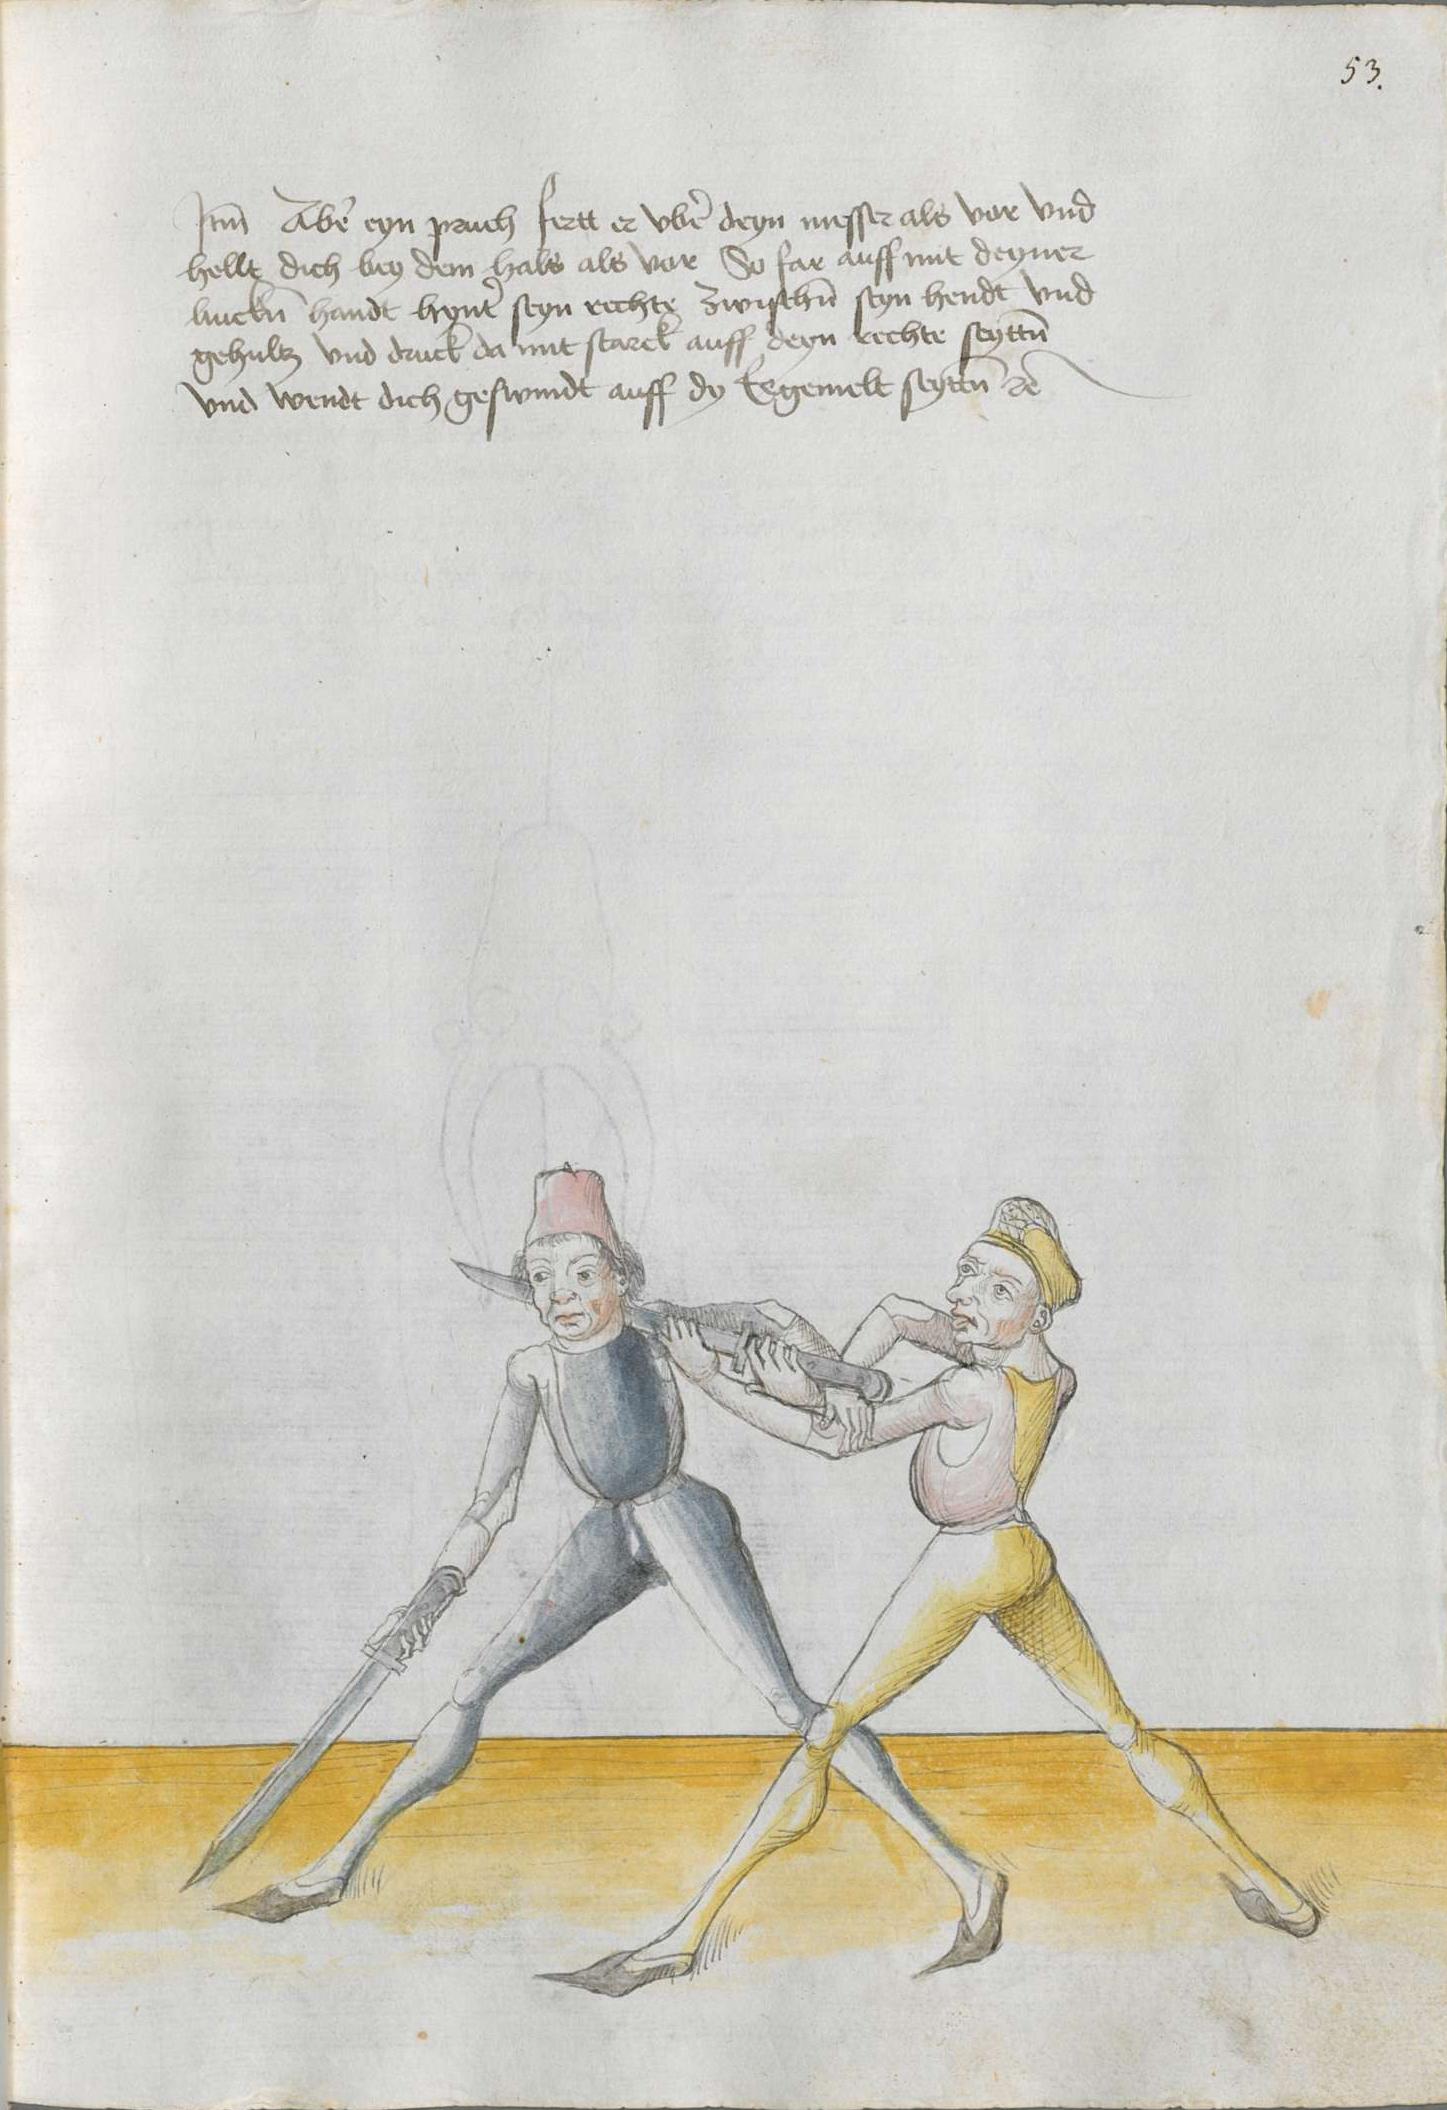 53.
Itm̄ Abe᷑ eyn pruch fertt er vbe᷑ deyn messer als vor vnd
hellt dich bey dem hals als vor So far auff mit deyner
linckñ handt hynt᷑ seyn rechte zwischñ seyn hendt vnd
gehultz vnd druck da mit starck auff deyn rechte seyttñ
vnd wendt dich geswindt auff dy tzgemelt seyttñ